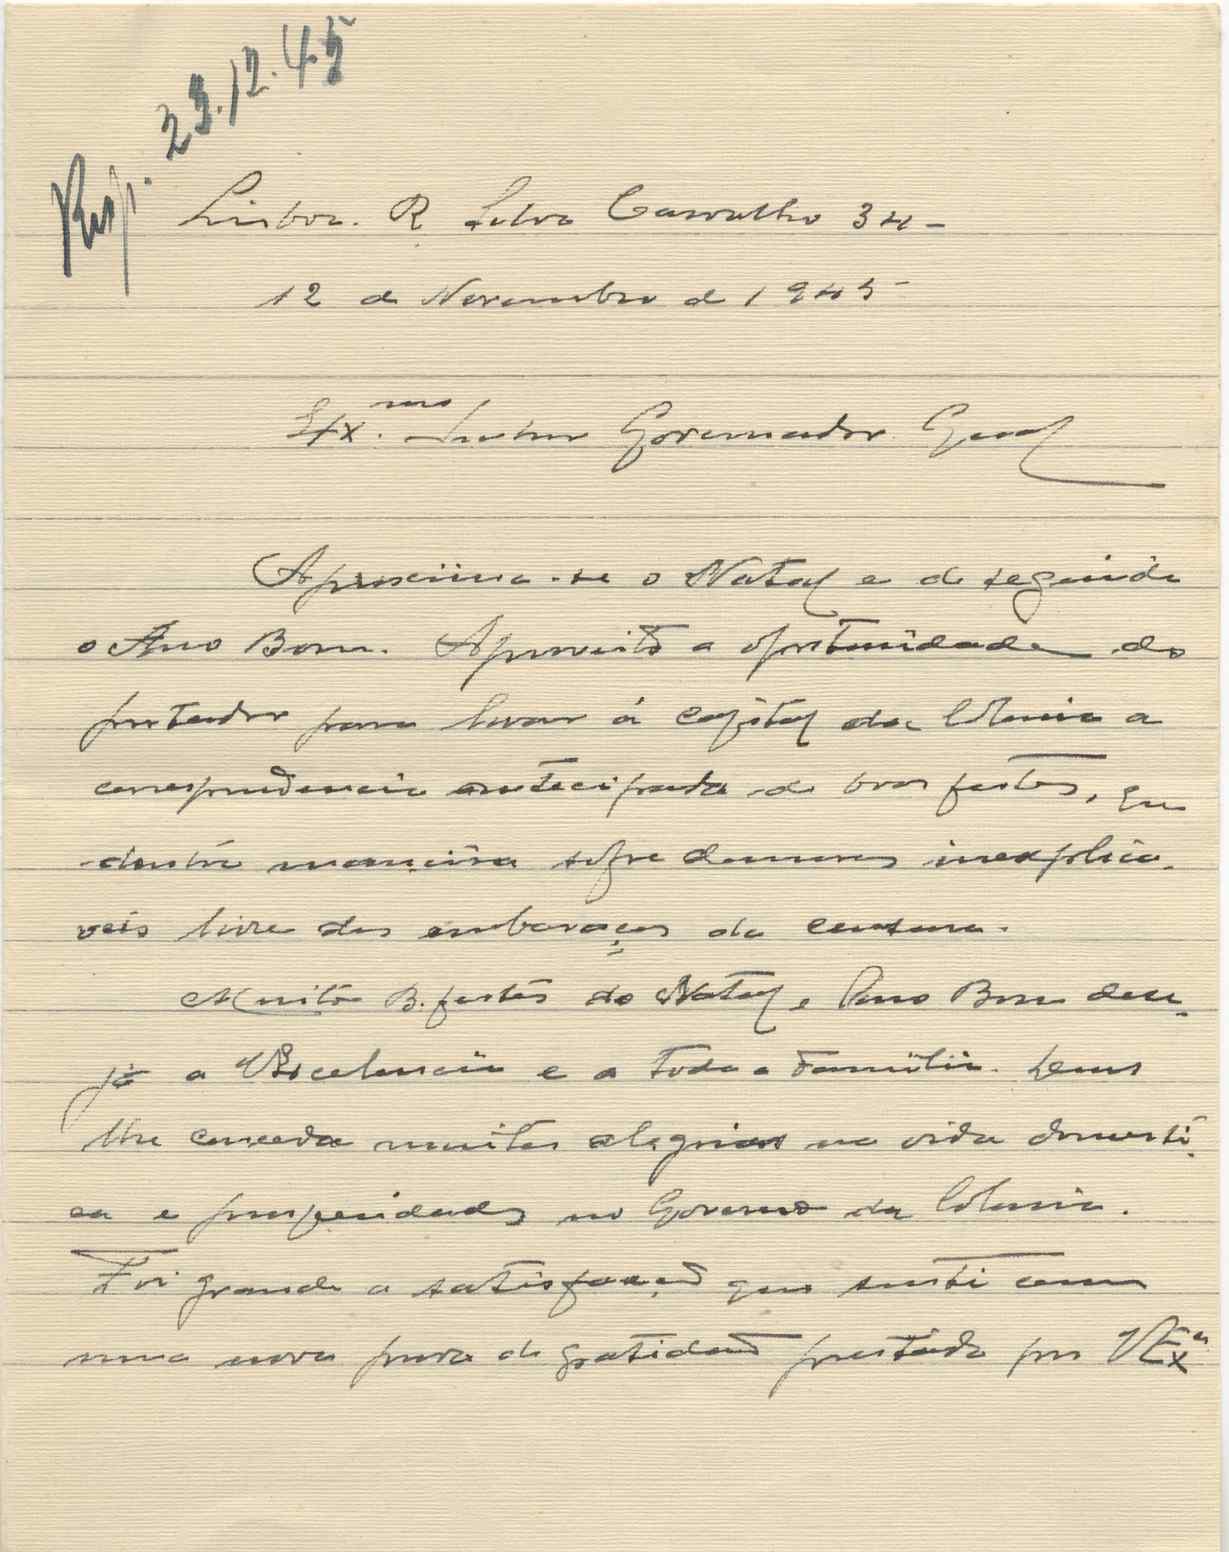 Resp. 23.12.45
Lisboa. R Silva Carvalho 34-
12 de Novembro de 1945
Exmo. Senhor Governador Geral
Aproxima-se o Natal e de seguida
o Ano Bom. Aproveito a oportunidade do
portador para levar á capital da Colonia a
correspondencia antecipada de boas festas, que
doutra maneira sofre demoras inexplica-
veis livre dos embaraços da censura.
Muito B. festas do Natal e Ano Bom dese-
jo a VExcelencia e a toda a familia. Deus
lhe conceda muitas alegrias na vida domesti-
ca e prosperidades no Governo da Colonia.
Foi grande a satisfação que senti com
uma nova prova de gratidão prestada por VExa